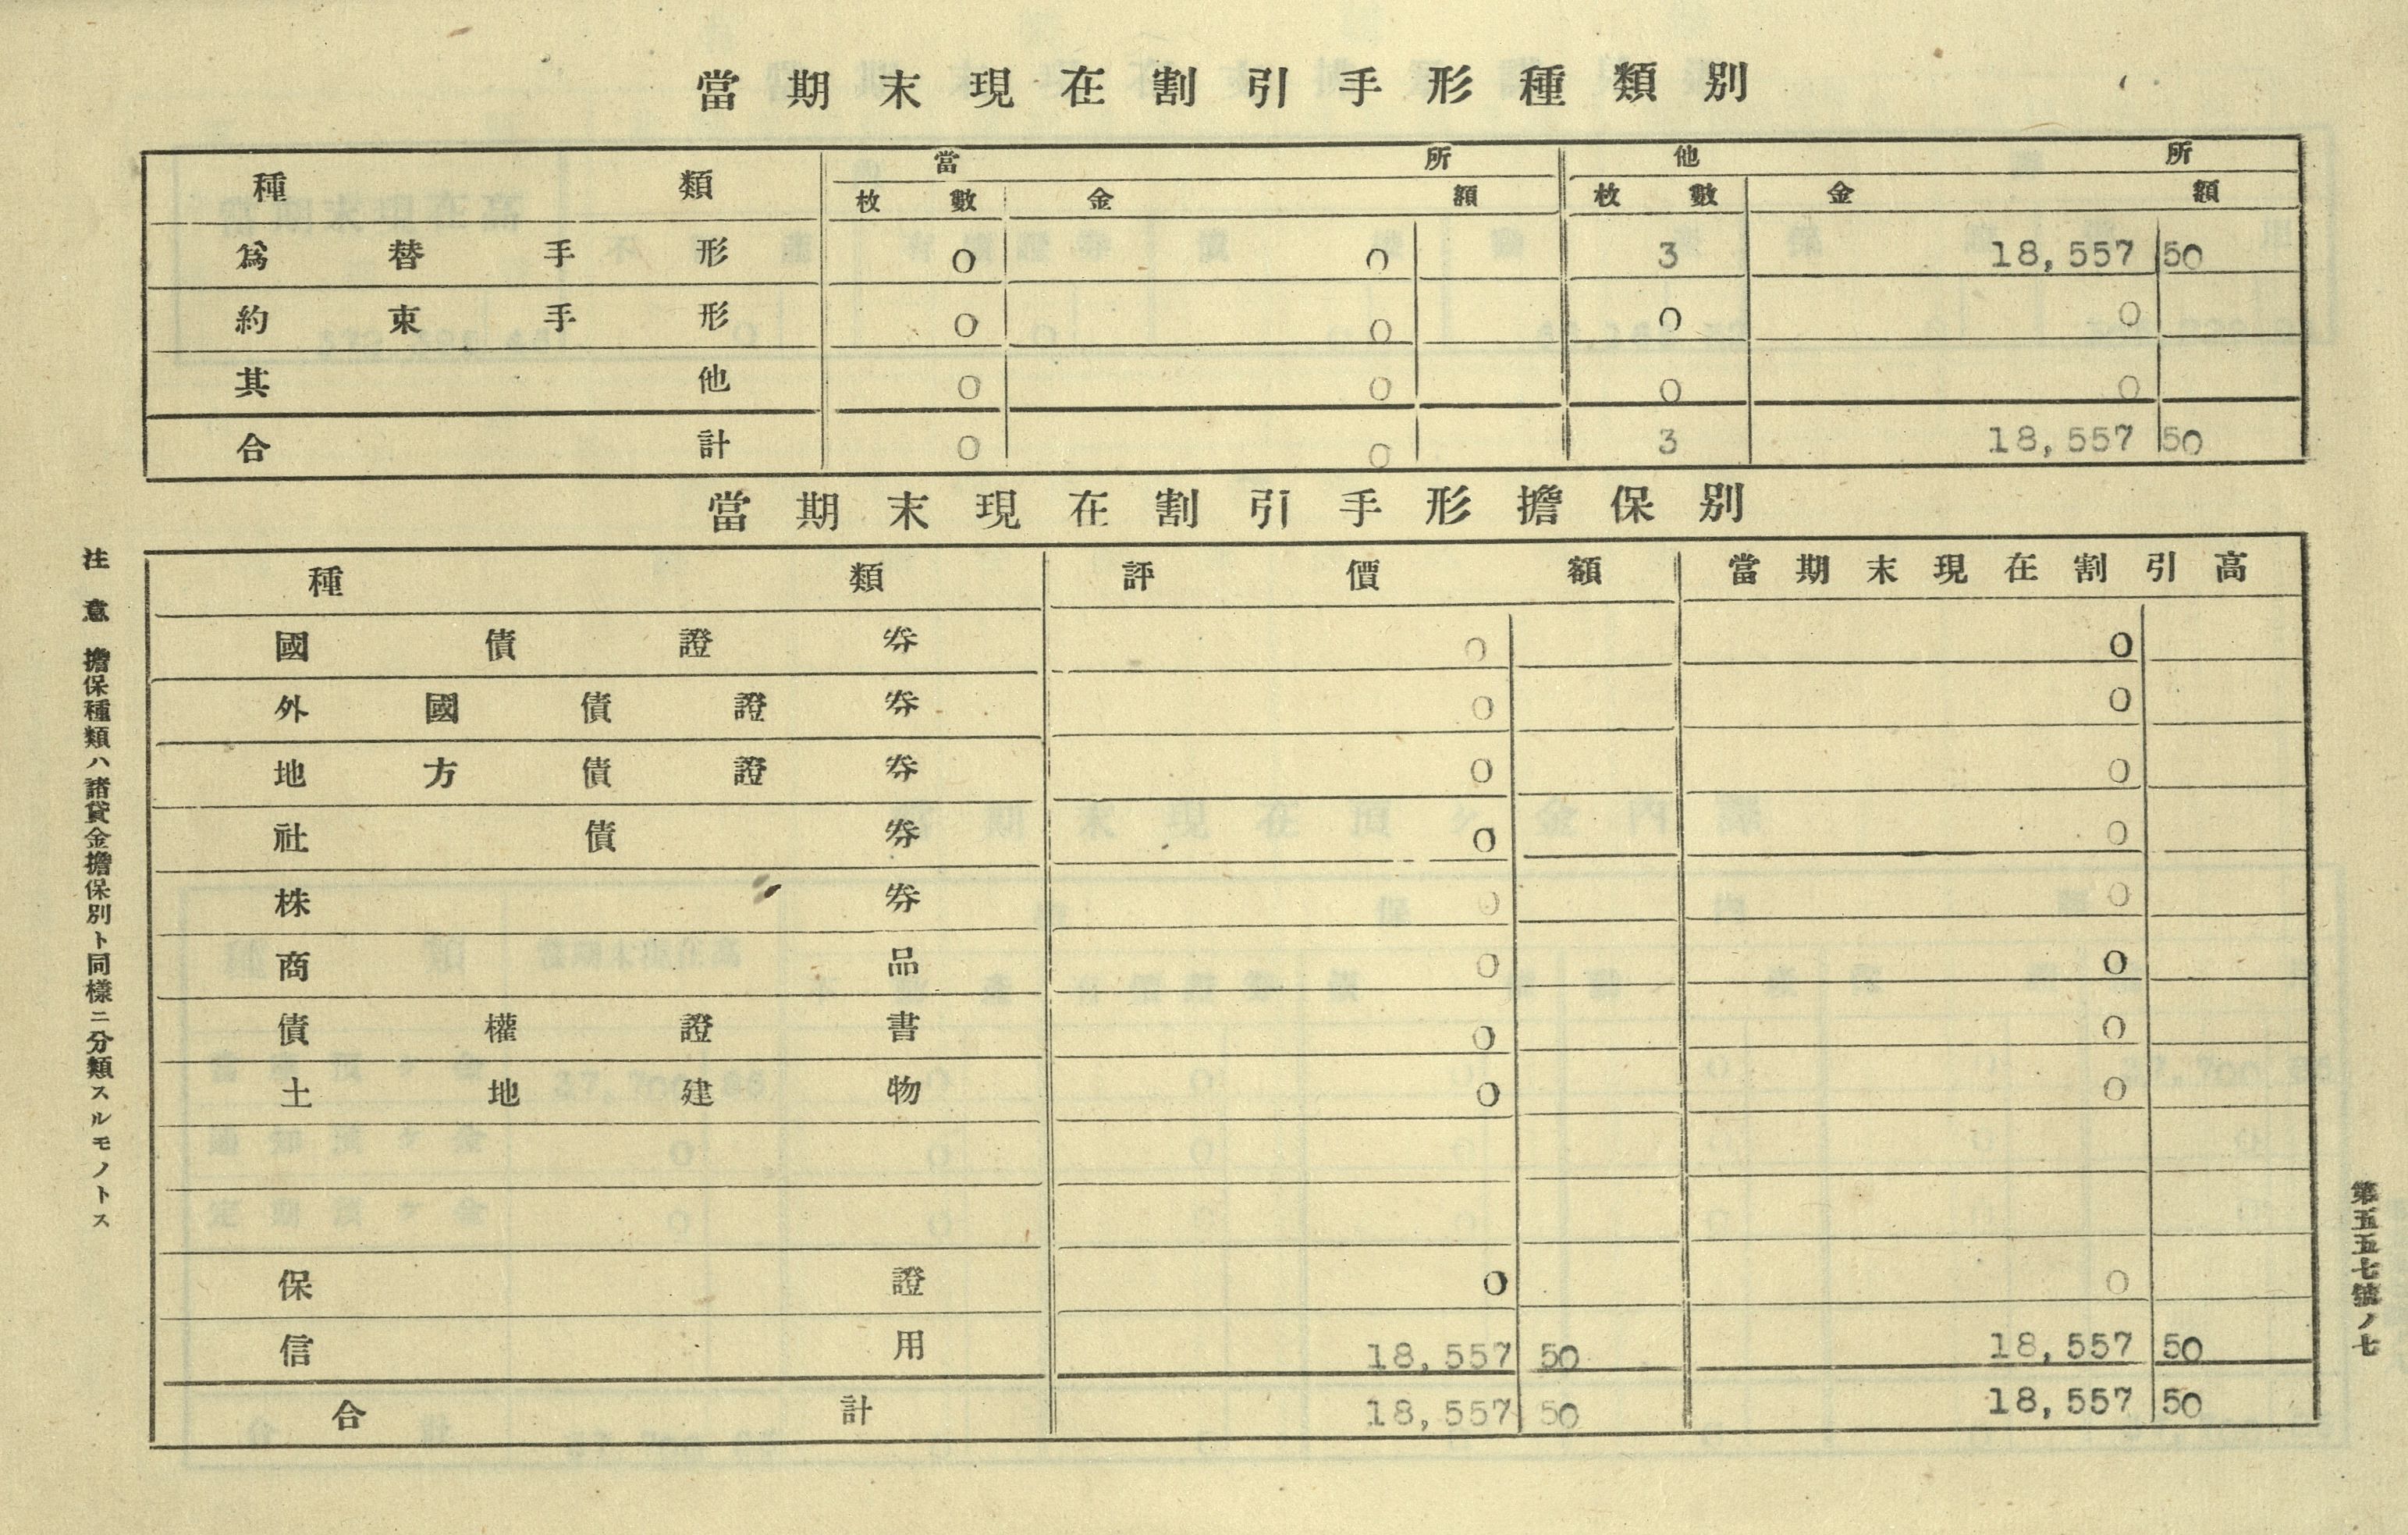 當期末現在割引手形種類別
種類 當所 他所
枚數 金額 枚數 金額
爲替手形 0 0 3 18,557 50
約束手形 0 0 0 0
其他 0 0 0 0
合計 0 0 3 18,557 50
當期末現在割引手形擔保別
種類 評價額 當期末現在割引高
國債證券 0 0
外國債證券 0 0
地方債證券 0 0
社債券 0 0
株券 0 0
商品 0 0
債權證書 0 0
土地建物 0 0
保證 0 0
信用 18,557 50 18,557 50
合計 18,557 50 18,557 50
注意 擔保種類ハ諸貸金擔保別ト同樣ニ分類スルモノトス
第五五七號ノ七